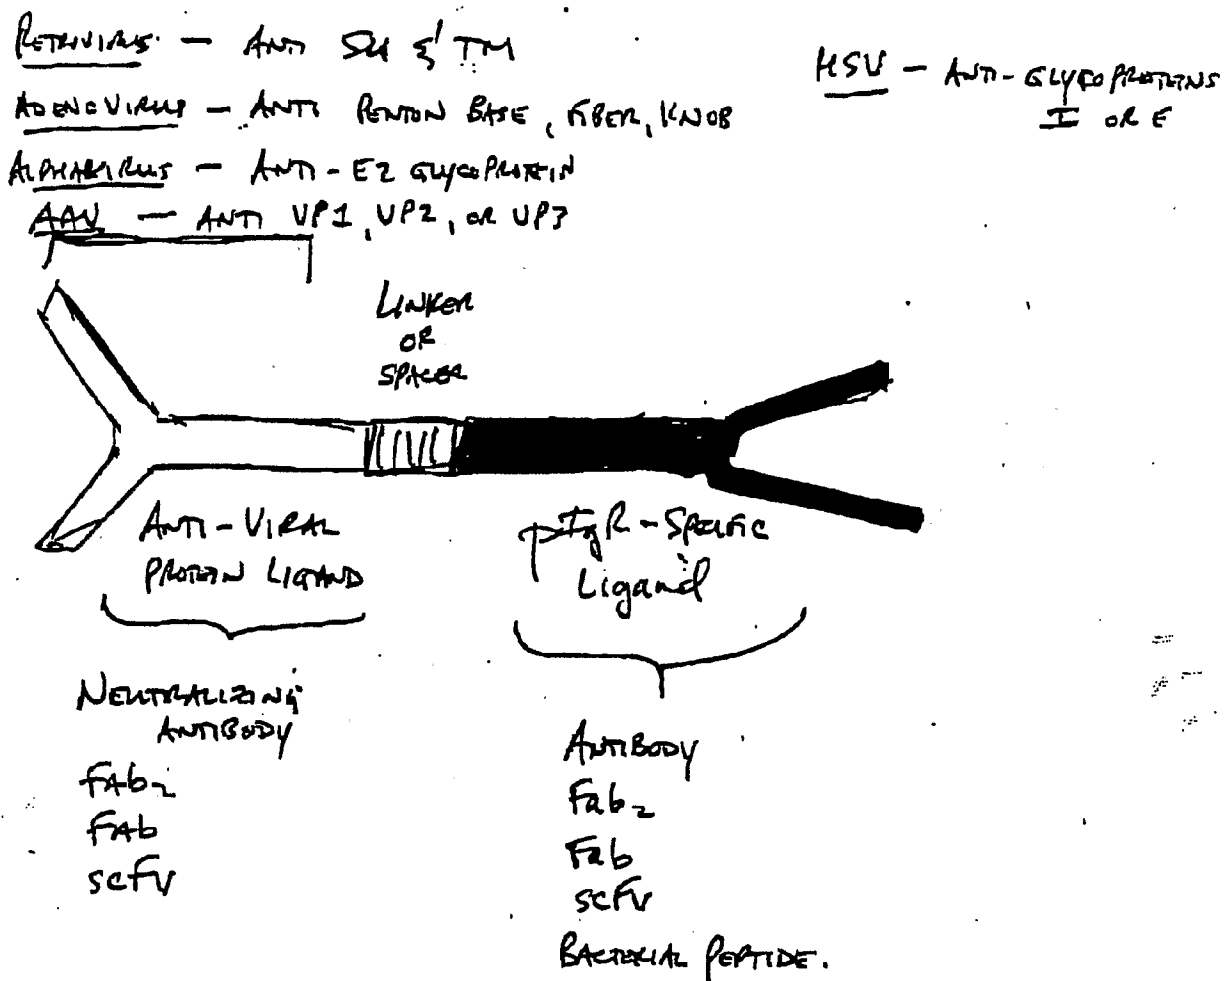 RETROVIRUS - ANTI SU & TM
HSV - ANTI-GLYCOPROTEINS
I OR E
ADENOVIRUS - ANTI PENTON BASE, FIBER, KNOB
ALPHAVIRUS - ANTI-E2 GLYCOPROTEIN
AAV - ANTI VP1, VP2, OR VP3
LINKER
OR
SPACER
ANTI-VIRAL
PROTEIN LIGAND
pIgR-SPECIFIC
Ligand
NEUTRALIZING
ANTIBODY
FAb2
FAb
scFv
ANTIBODY
Fab2
Fab
scFv
BACTERIAL PEPTIDE.